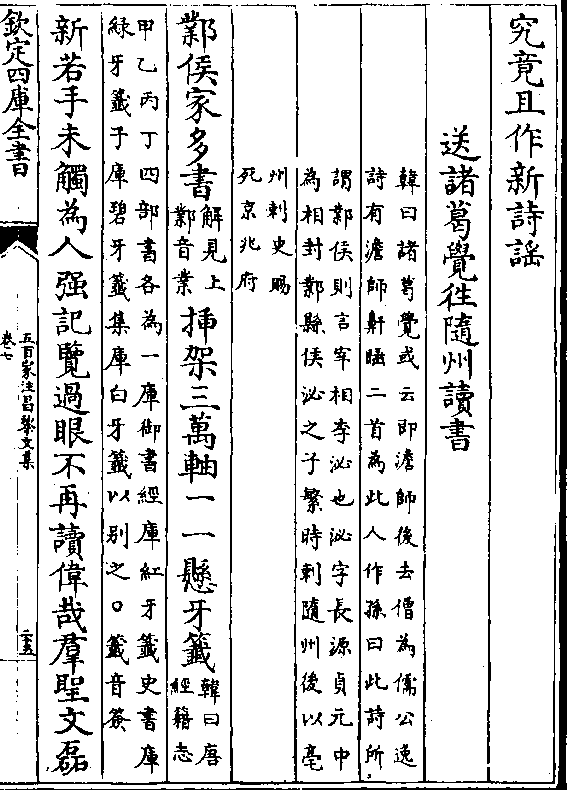 究竟且作新詩謡
送諸葛覺徃隨州讀書
韓曰諸葛覺或云即澹師後去僧為儒公逸
詩有澹師鼾睡二首為此人作孫曰此詩所
謂鄴侯則言宰相李泌也泌字長源貞元中
為相封鄴縣侯泌之子繁時刺隨州後以亳
州刺史賜
死京兆府
鄴侯家多書解見上鄴音業挿架三萬軸一一懸牙籤韓曰唐經籍志
甲乙丙丁四部書各為一庫御書經庫紅牙籤史書庫
緑牙籤子庫碧牙籤集庫白牙籤以别之○籤音簽
新若手未觸為人强記覽過眼不再讀偉哉羣聖文磊
欽定四庫全書
五百家注昌黎文集
卷七
二十五